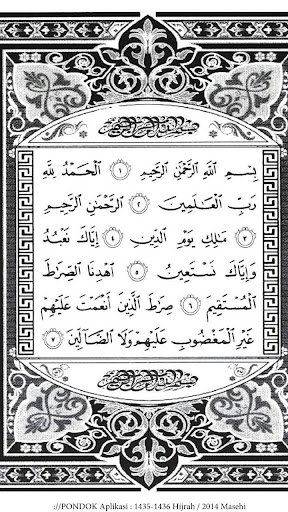 بِسْمِ ٱللَّهِ ٱلرَّحْمَٰنِ ٱلرَّحِيمِ ١ ٱلْحَمْدُ لِلَّهِ
رَبِّ ٱلْعَٰلَمِينَ ٢ ٱلرَّحْمَٰنِ ٱلرَّحِيمِ
٣ مَٰلِكِ يَوْمِ ٱلدِّينِ ٤ إِيَّاكَ نَعْبُدُ
وَإِيَّاكَ نَسْتَعِينُ ٥ ٱهْدِنَا ٱلصِّرَٰطَ
ٱلْمُسْتَقِيمَ ٦ صِرَٰطَ ٱلَّذِينَ أَنْعَمْتَ عَلَيْهِمْ
غَيْرِ ٱلْمَغْضُوبِ عَلَيْهِمْ وَلَا ٱلضَّآلِّينَ ٧
://PONDOK Aplikasi : 1435-1436 Hijrah / 2014 Masehi